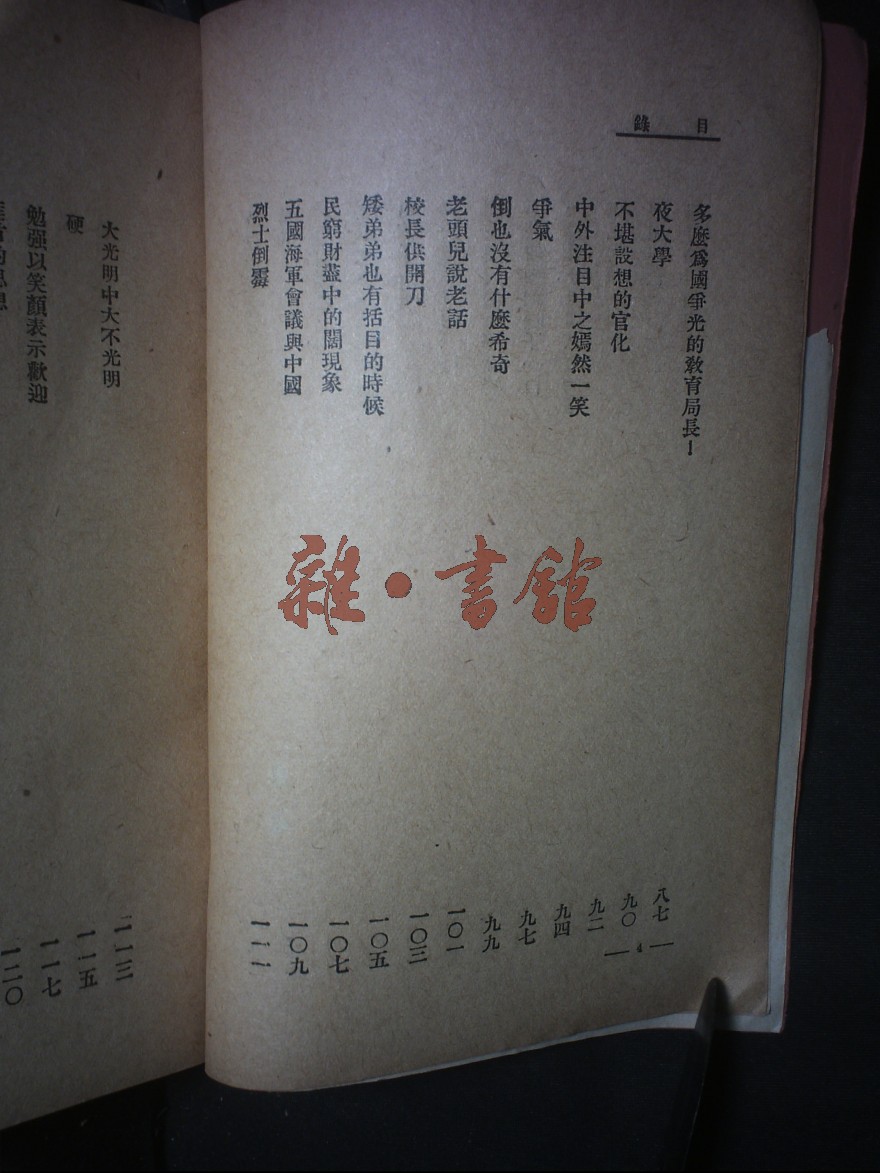 目錄
多麼爲國爭光的教育局長！
八七
夜大學
九〇
不堪設想的官化
九二
中外注目中之嫣然一笑
九四
爭氣
九七
倒也沒有什麽希奇
九九
老頭兒說老話
一〇一
校長供開刀
一〇三
矮弟弟也有括目的時候
一〇五
民窮財盡中的闊現象
一〇七
五國海軍會議與中國
一〇九
烈士倒霉
一一一
4
雜·書館
大光明中大不光明
一一三
硬
一一五
勉强以笑顏表示歡迎
一一七
一二〇